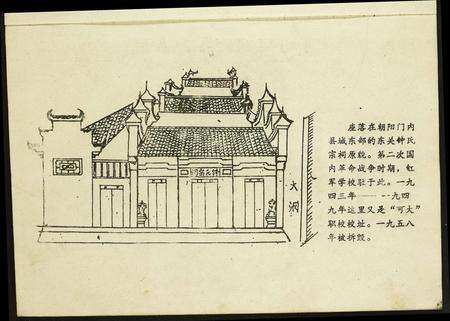 座落在朝阳门内
县城东部的东关钟氏
宗祠原貌。第二次国
内革命战争时期，红
军学校驻于此。一九
四三年——一九四
九年这里又是“可大”
职校校址。一九五八
年被拆毁。